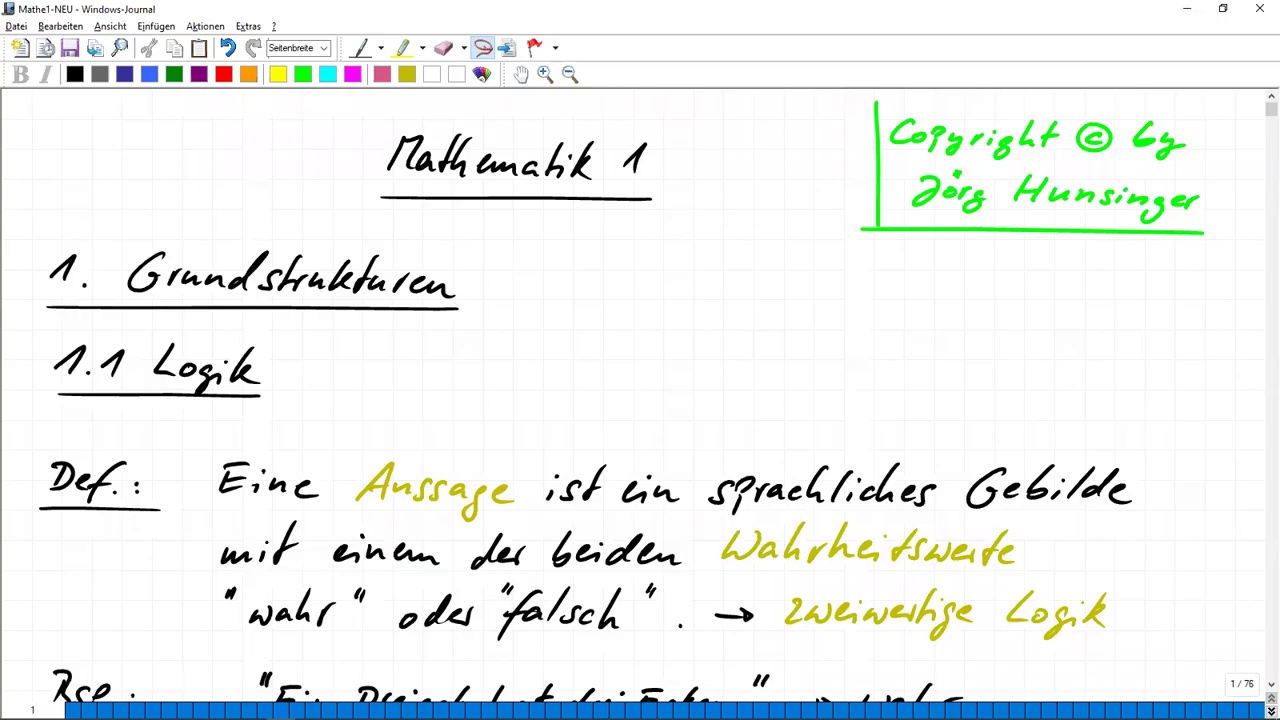 Mathe1-NEU - Windows-Journal
Datei Bearbeiten Ansicht Einfügen Aktionen Extras ?
Seitenbreite
B I
Mathematik 1
Copyright © by
Jörg Hunsinger
1. Grundstrukturen
1.1 Logik
Def.: Eine Aussage ist ein sprachliches Gebilde
mit einem der beiden Wahrheitswerte
"wahr" oder "falsch". → zweiwertige Logik
Bsp.: "Ein Dreieck hat drei Ecken" →
1 / 76
1